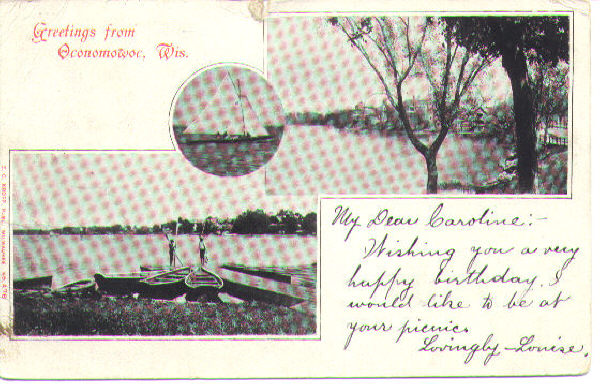 Greetings from
Oconomowoc, Wis.
My Dear Caroline:-
Wishing you a very
happy birthday. I
would like to be at
your picnic.
Lovingly Louise.
E. C. KROPP PUBL. MILWAUKEE No. 478